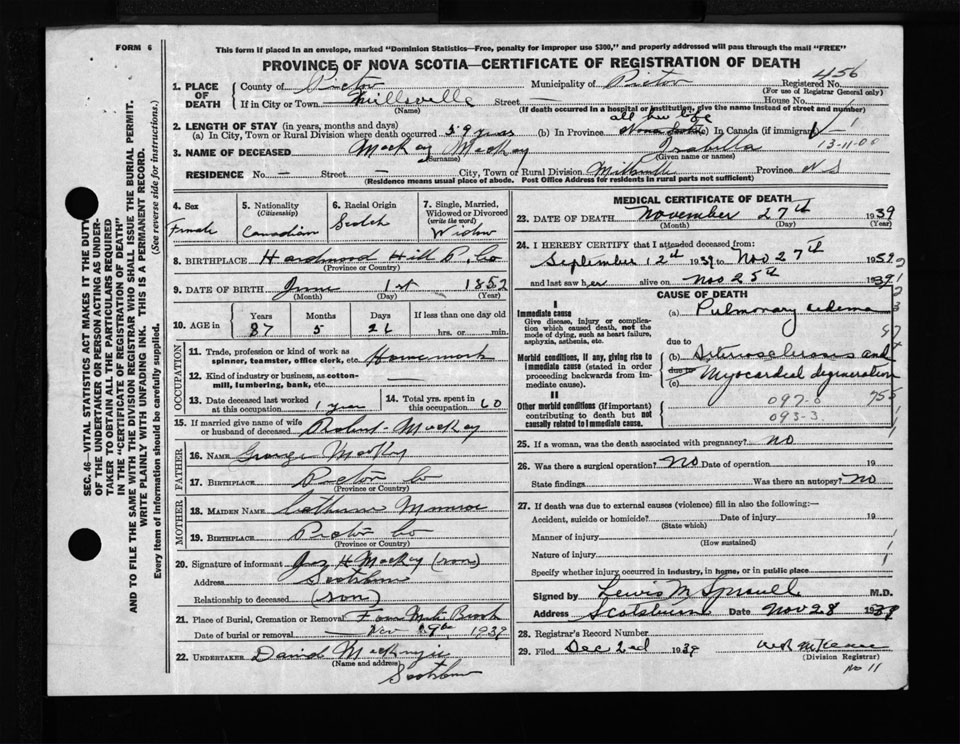 FORM 6
This form if placed in an envelope, marked "Dominion Statistics—Free, penalty for improper use $300," and properly addressed will pass through the mail "FREE"
PROVINCE OF NOVA SCOTIA—CERTIFICATE OF REGISTRATION OF DEATH
456
1. PLACE OF DEATH County of Pictou Municipality of Pictou Registered No.
(For use of Registrar General only)
If in City or Town Millsville Street House No.
(If death occurred in a hospital or institution, give the name instead of street and number)
all her life
2. LENGTH OF STAY (in years, months and days)
(a) In City, Town or Rural Division where death occurred 59 years (b) In Province Nova Scotia (c) In Canada (if immigrant)
13-11-00
3. NAME OF DECEASED MacKay MacKay Isabella
(Surname) (Given name or names)
RESIDENCE No. — Street — City, Town or Rural Division Millsville Province N S
(Residence means usual place of abode. Post Office Address for residents in rural parts not sufficient)
SEC. 46—VITAL STATISTICS ACT MAKES IT THE DUTY
OF THE UNDERTAKER OR PERSON ACTING AS UNDER-
TAKER TO OBTAIN ALL THE PARTICULARS REQUIRED
IN THE "CERTIFICATE OF REGISTRATION OF DEATH"
AND TO FILE THE SAME WITH THE DIVISION REGISTRAR WHO SHALL ISSUE THE BURIAL PERMIT.
WRITE PLAINLY WITH UNFADING INK. THIS IS A PERMANENT RECORD.
Every item of information should be carefully supplied. (See reverse side for instructions.)
4. Sex Female
5. Nationality (Citizenship) Canadian
6. Racial Origin Scotch
7. Single, Married, Widowed or Divorced (write the word) Widow
8. BIRTHPLACE Hardwood Hill P. Co
(Province or Country)
9. DATE OF BIRTH June 1st 1852
(Month) (Day) (Year)
10. AGE in Years Months Days If less than one day old
87 5 26 hrs. or min.
OCCUPATION
11. Trade, profession or kind of work as spinner, teamster, office clerk, etc. Homework
12. Kind of industry or business, as cotton-mill, lumbering, bank, etc. —
13. Date deceased last worked at this occupation 1 year
14. Total yrs. spent in this occupation 60
15. If married give name of wife or husband of deceased Robert MacKay
FATHER
16. NAME George MacKay
17. BIRTHPLACE Pictou Co
(Province or Country)
MOTHER
18. MAIDEN NAME Catherine Munroe
19. BIRTHPLACE Pictou Co
(Province or Country)
20. Signature of informant H MacKay (son)
Address Scotsburn
Relationship to deceased (son)
21. Place of Burial, Cremation or Removal Brook
Date of burial or removal 1939
22. UNDERTAKER David MacKenzie
(Name and address)
Scotsburn
MEDICAL CERTIFICATE OF DEATH
23. DATE OF DEATH November 27th 1939
(Month) (Day) (Year)
24. I HEREBY CERTIFY that I attended deceased from:
September 12th 1939 to Nov 27th 1939
and last saw her alive on Nov 25th 1939
CAUSE OF DEATH
I
Immediate cause
Give disease, injury or complication which caused death, not the mode of dying, such as heart failure, asphyxia, asthenia, etc.
(a) Pulmonary edema
due to
Morbid conditions, if any, giving rise to immediate cause (stated in order proceeding backwards from immediate cause).
(b) Arteriosclerosis and
due to
(c) Myocardial degeneration
II
Other morbid conditions (if important) contributing to death but not causally related to immediate cause.
097-0
093-3
25. If a woman, was the death associated with pregnancy? no
26. Was there a surgical operation? No Date of operation 19
State findings Was there an autopsy? No
27. If death was due to external causes (violence) fill in also the following:
Accident, suicide or homicide? Date of injury 19
(State which)
Manner of injury
(How sustained)
Nature of injury
Specify whether injury occurred in industry, in home, or in public place
Signed by Lewis M M.D.
Address Scotsburn Date Nov 28 1939
28. Registrar's Record Number
29. Filed Dec 2nd 1939
(Division Registrar)
No 11